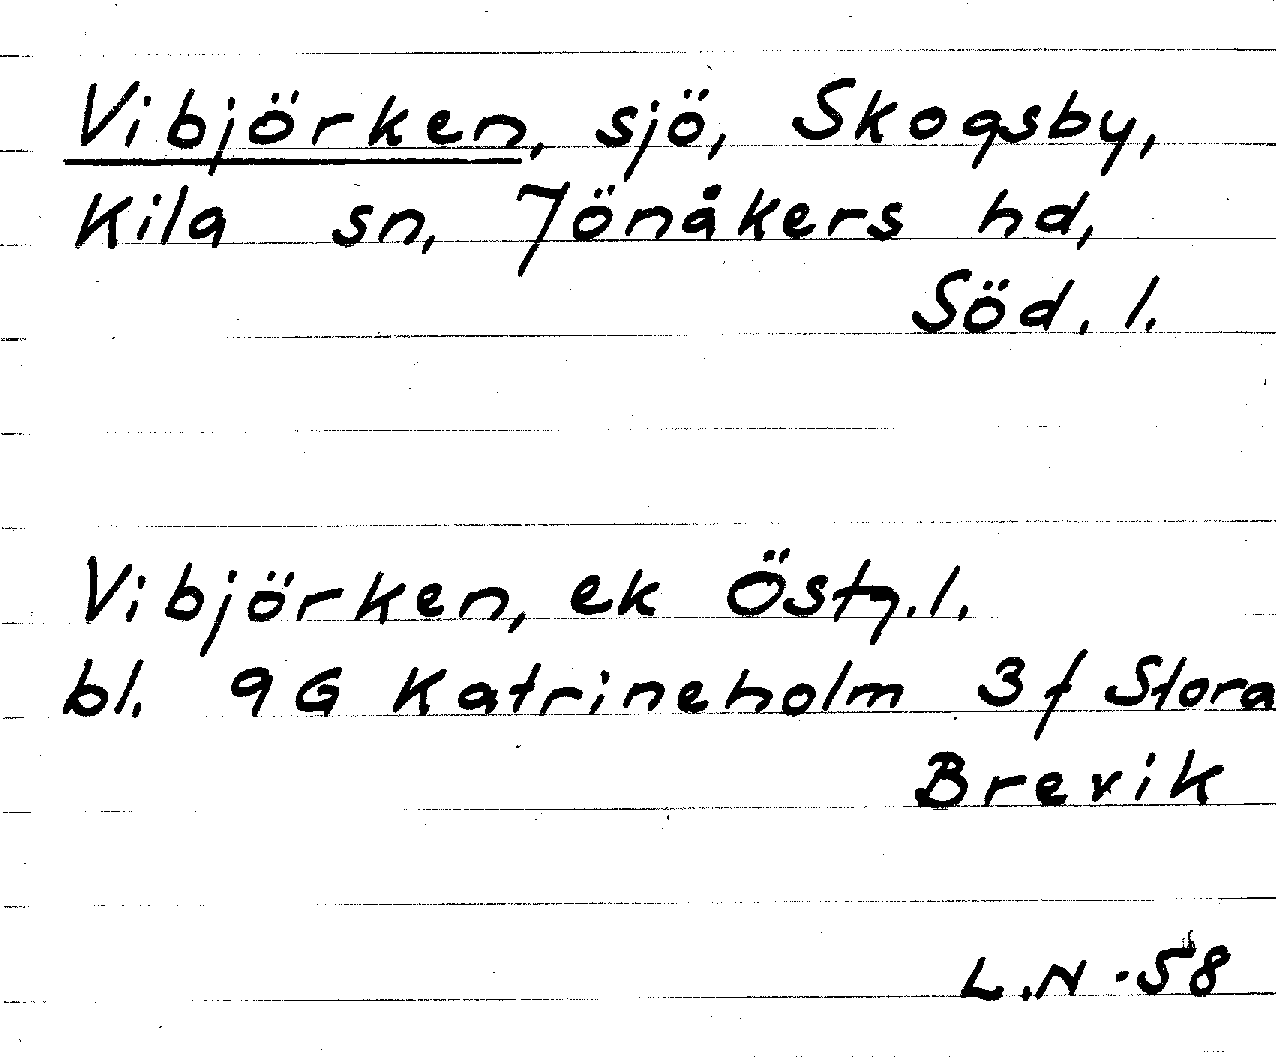 Vibjörken, sjö, Skogsby,
Kila sn, Jönåkers hd,
Söd. l.
Vibjörken, ek Östg. l.
bl. 9G Katrineholm 3f Stora
Brevik
L.N -58